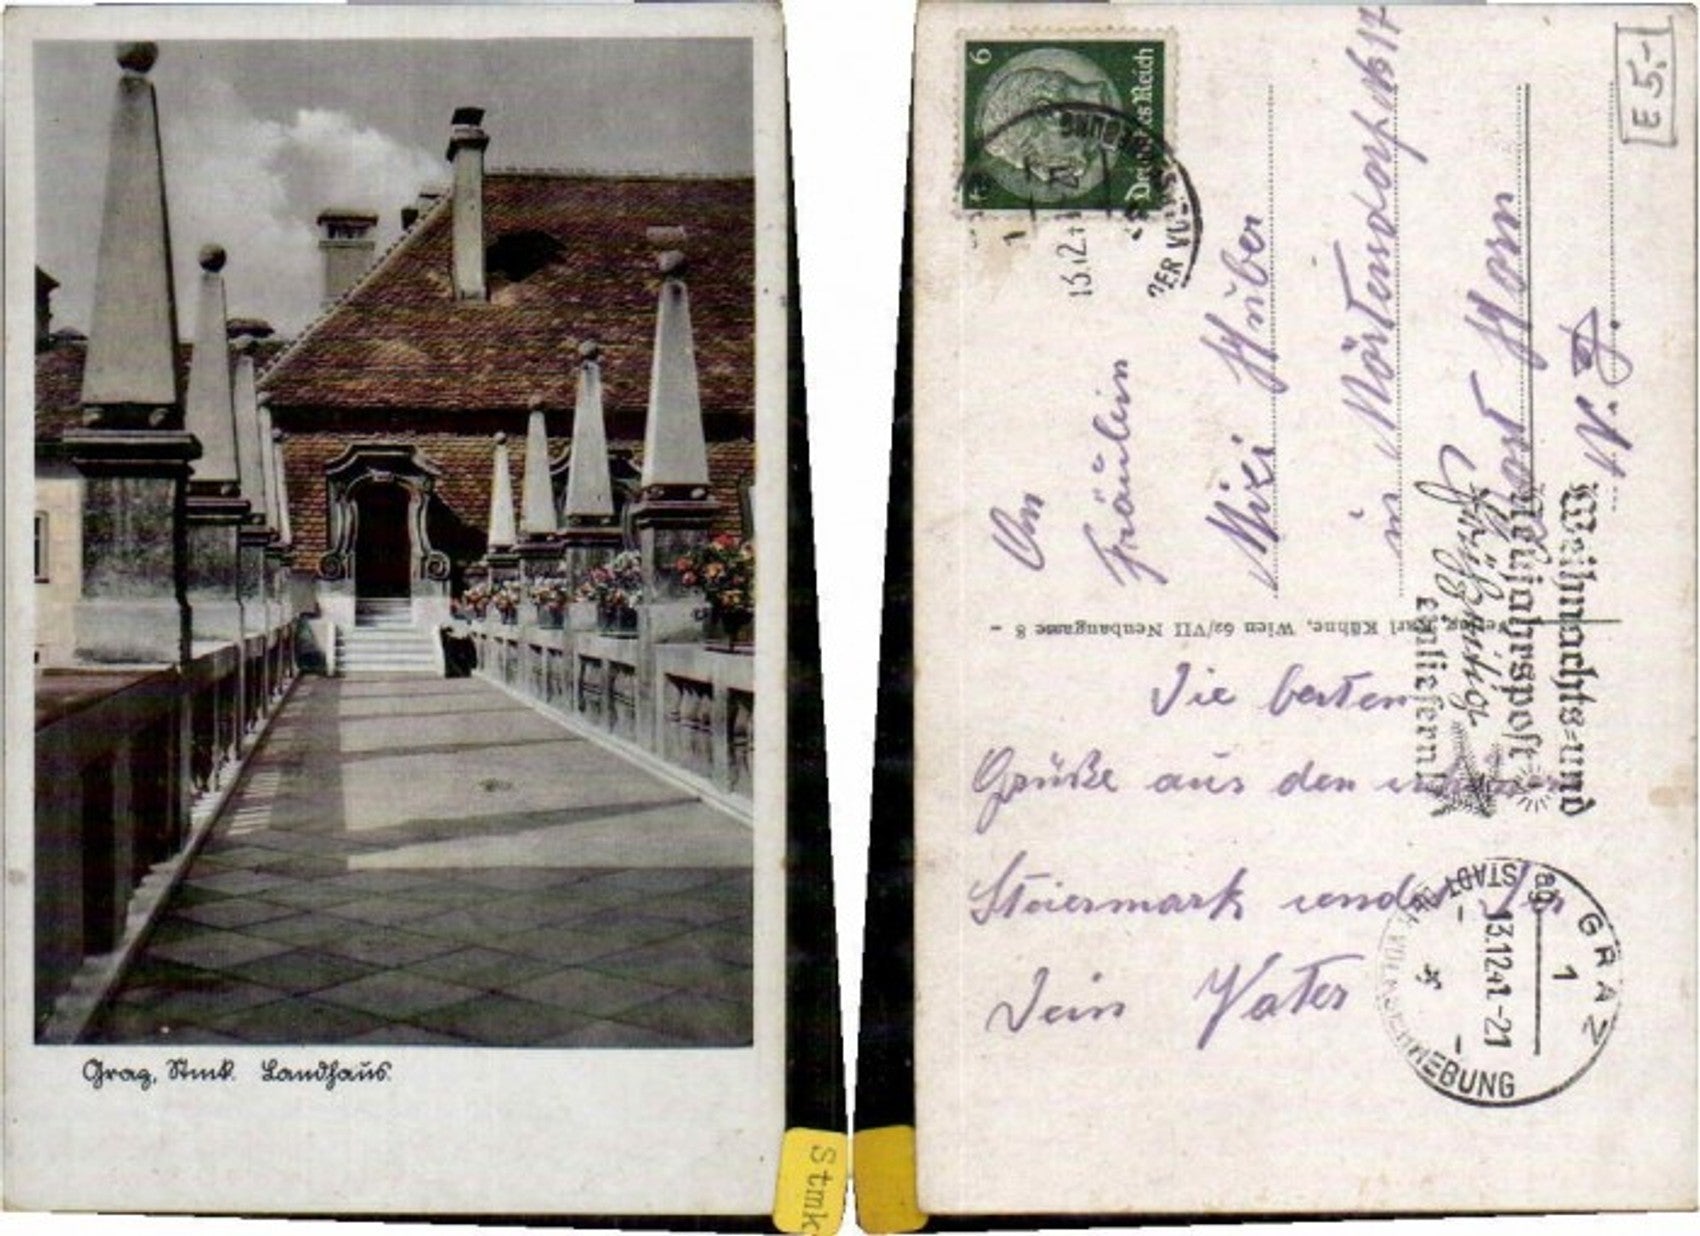 Graz, Stmk. Landhaus.
Stmk
6
Deutsches Reich
E 5.-
An
Fräulein
Mizi Huber
in Mörtersdorf No 17
Post Horn
N. D.
Verlag Karl Kühne, Wien 62/VII Neubaugasse 8
Weihnachts- und
Neujahrspost
frühzeitig
einliefern!
Die besten
Grüße aus den
Steiermark sendet Dir
Dein Vater
GRAZ
1
13.12.41.-21
STADT DER VOLKSERHEBUNG